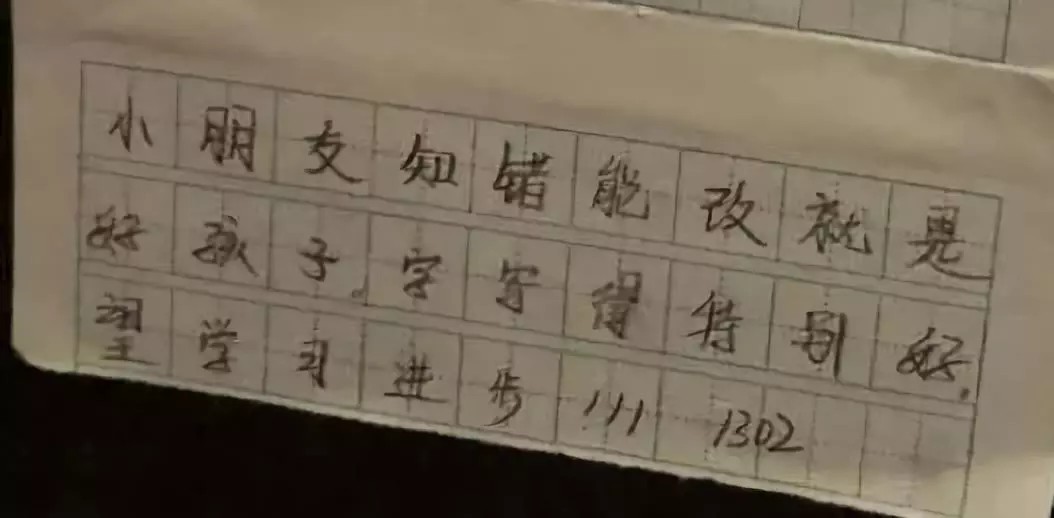 小朋友知错能改就是
好孩子。字写得特别好。
望学习进步!!! 1302